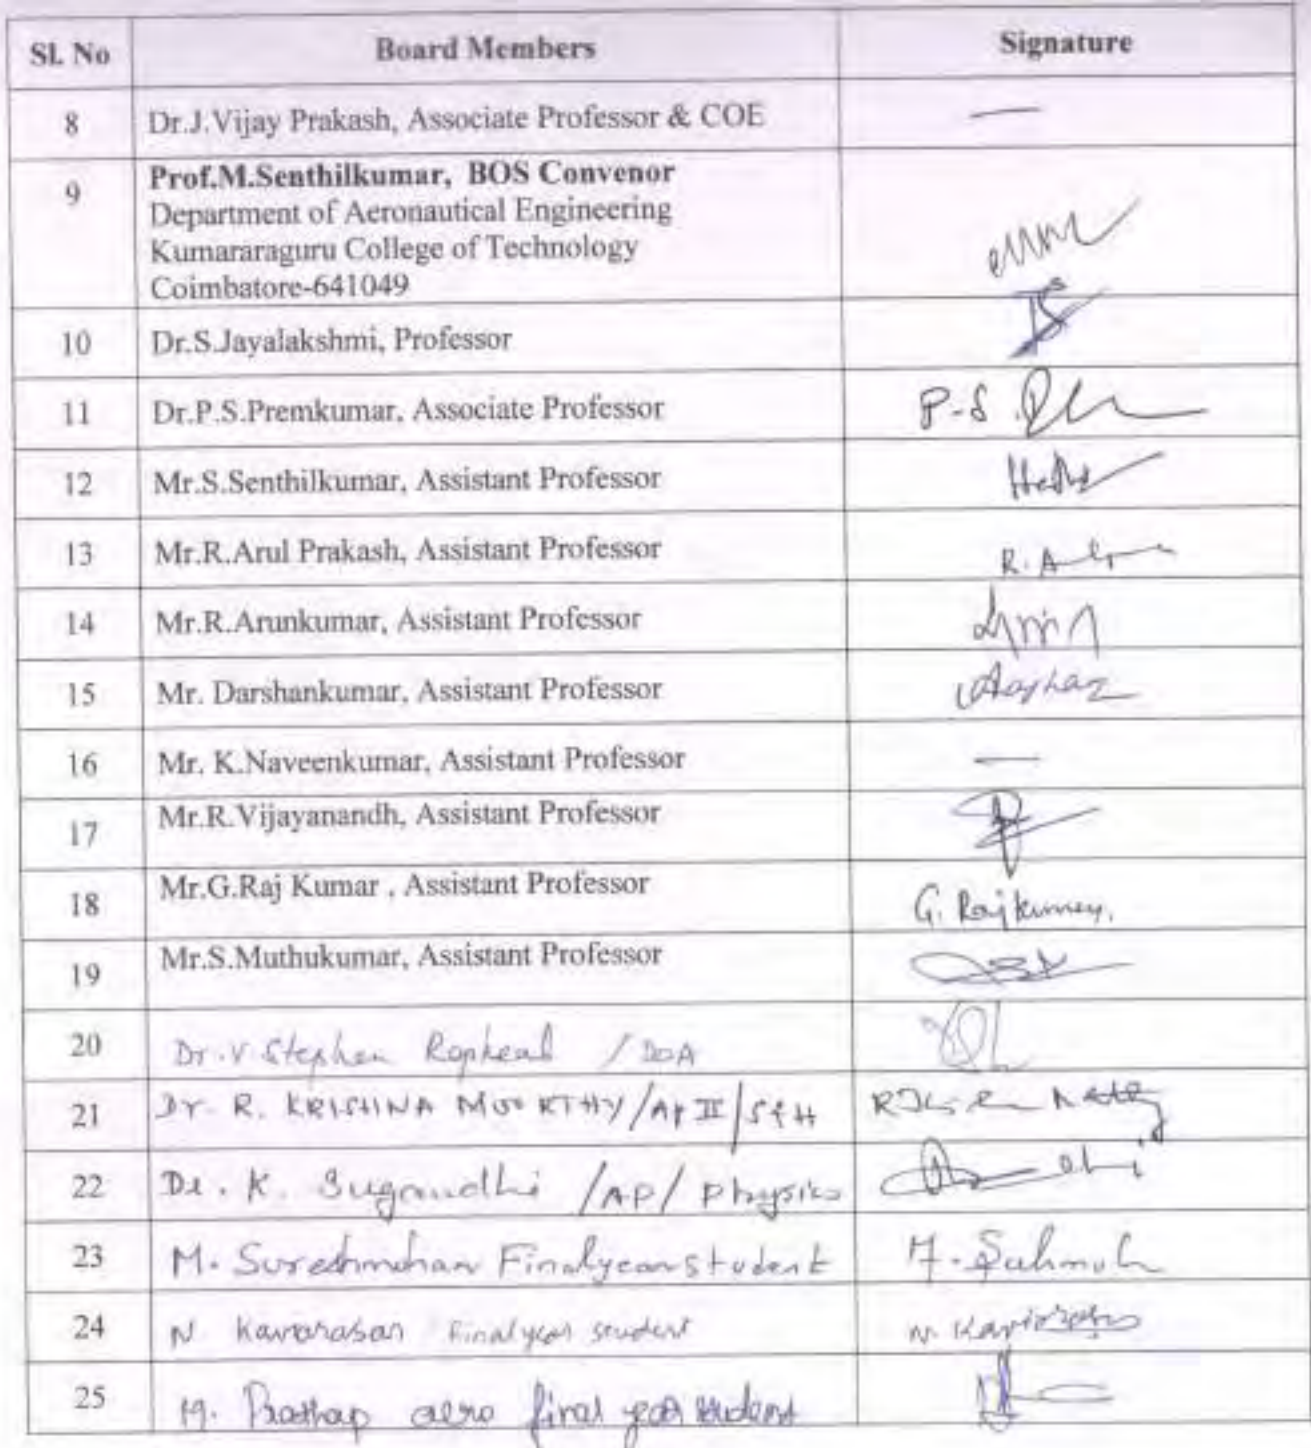 Sl. No Board Members Signature
8 Dr.J.Vijay Prakash, Associate Professor & COE —
9 Prof.M.Senthilkumar, BOS Convenor
Department of Aeronautical Engineering
Kumararaguru College of Technology
Coimbatore-641049
10 Dr.S.Jayalakshmi, Professor
11 Dr.P.S.Premkumar, Associate Professor P.S.
12 Mr.S.Senthilkumar, Assistant Professor
13 Mr.R.Arul Prakash, Assistant Professor R.
14 Mr.R.Arunkumar, Assistant Professor
15 Mr. Darshankumar, Assistant Professor
16 Mr. K.Naveenkumar, Assistant Professor —
17 Mr.R.Vijayanandh, Assistant Professor
18 Mr.G.Raj Kumar , Assistant Professor G. Rajkumar.
19 Mr.S.Muthukumar, Assistant Professor
20 Dr.V.Stephen Rapheal / DOA
21 Dr. R. KRISHNA MOORTHY/AP II/S&H
22 Dr. K. Sugandhi /AP/ Physics
23 M. Sureshmohan Final year student
24 N. Kavarasan Final year student N.
25 M. Prathap aero final year student